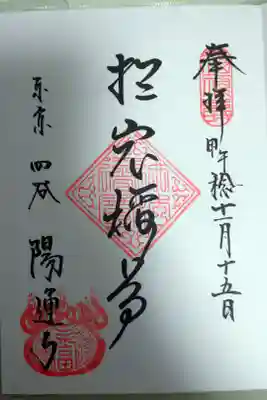 奉拝 甲午稔十一月十五日
於岩稲荷
東京 四谷 陽運寺